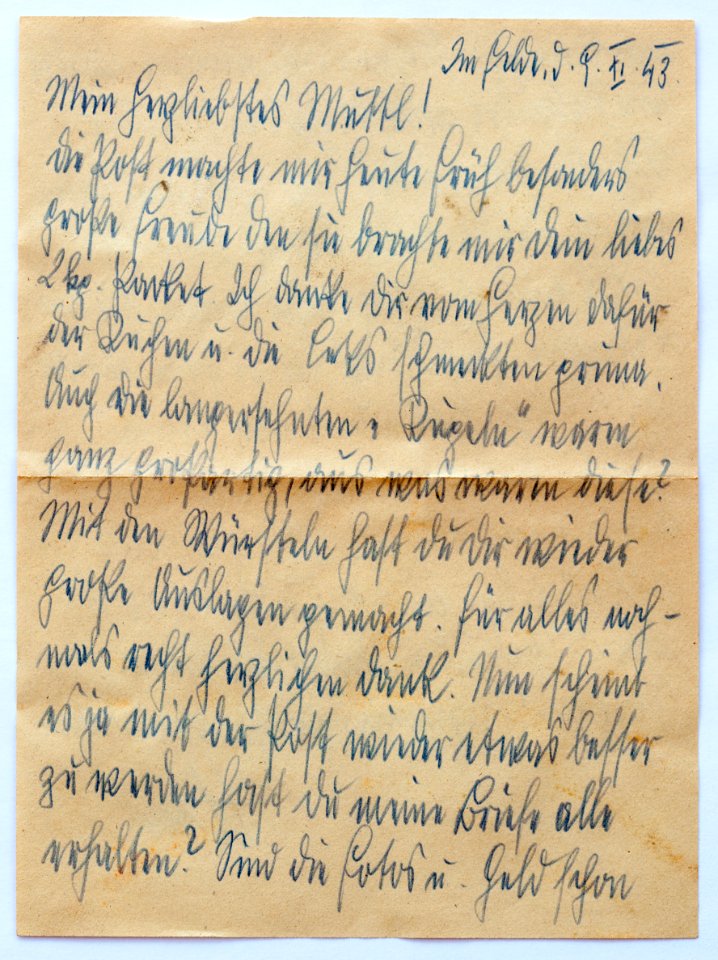 Im Felde, d. 9. XI. 43.
Mein herzliebstes Muttl!
die Post machte mir heute früh besonders
große Freude den sie brachte mir dein liebes
2 kg. Packet. Ich danke dir vom Herzen dafür
der Kuchen u. die Keks schmeckten prima.
Auch die langersehnten „Kugeln" waren
ganz großartig, aus was waren diese?
Mit den Würsteln hast du dir wieder
große Auslagen gemacht. für alles noch-
mals recht herzlichen dank. Nun scheint
es ja mit der Post wieder etwas besser
zu werden hast du meine Briefe alle
erhalten? Sind die Fotos u. Geld schon